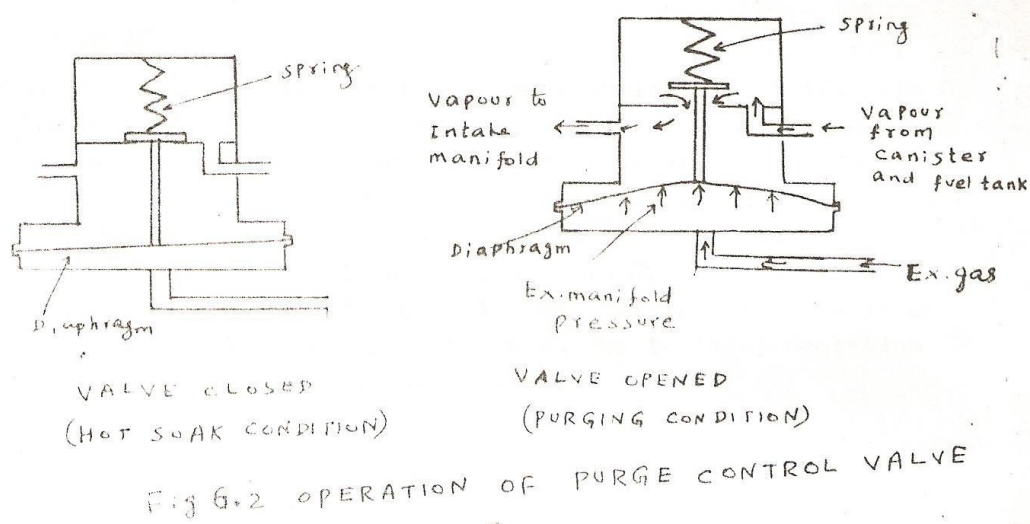 spring
Diaphragm
VALVE CLOSED
(HOT SOAK CONDITION)
spring
Vapour to
Intake
manifold
Vapour
from
canister
and fuel tank
Diaphragm
Ex.manifold
pressure
Ex.gas
VALVE OPENED
(PURGING CONDITION)
Fig 6.2 OPERATION OF PURGE CONTROL VALVE